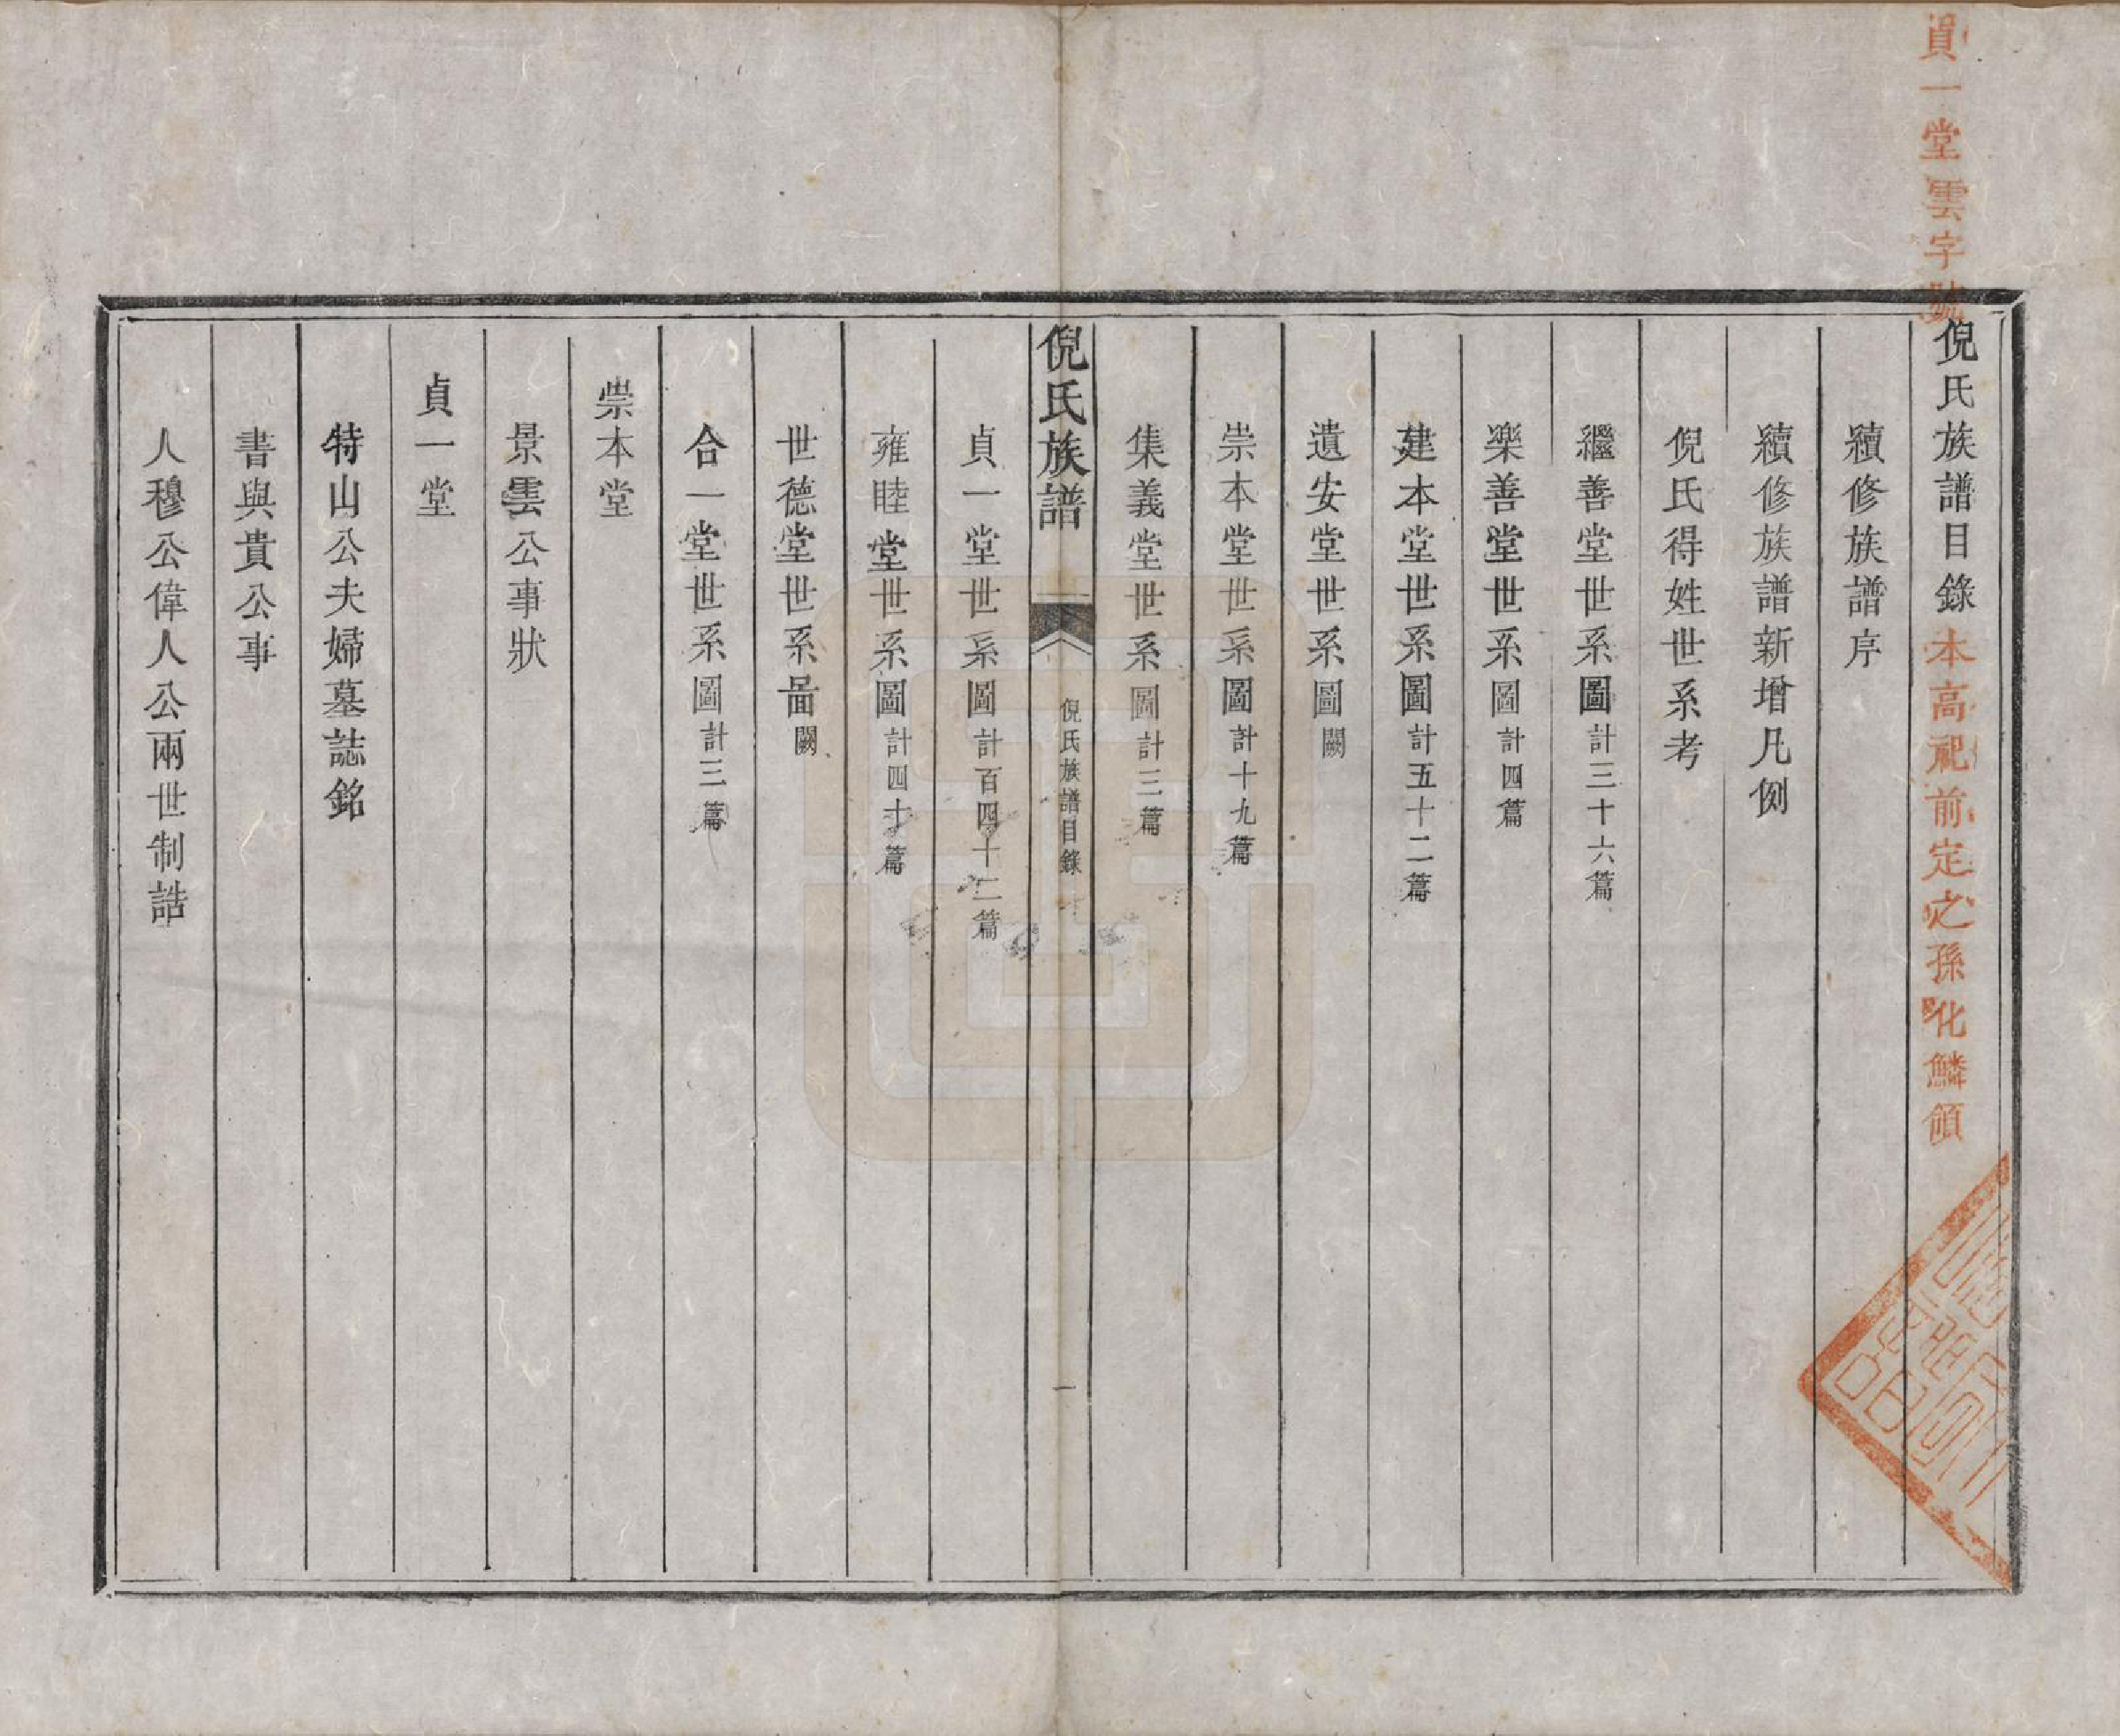 貞一堂雲字號
倪氏族譜目錄
本高祀前定之孫化鱗領
續修族譜序
續修族譜新增凡例
倪氏得姓世系考
繼善堂世系圖計三十六篇
樂善堂世系圖計四篇
建本堂世系圖計五十二篇
遺安堂世系圖闕
崇本堂世系圖計十九篇
集義堂世系圖計三篇
倪氏族譜
倪氏族譜目錄
一
貞一堂世系圖計百四十二篇
雍睦堂世系圖計四十篇
世德堂世系圖闕
合一堂世系圖計三篇
崇本堂
景雲公事狀
貞一堂
特山公夫婦墓誌銘
書與貴公事
人穆公偉人公兩世制誥